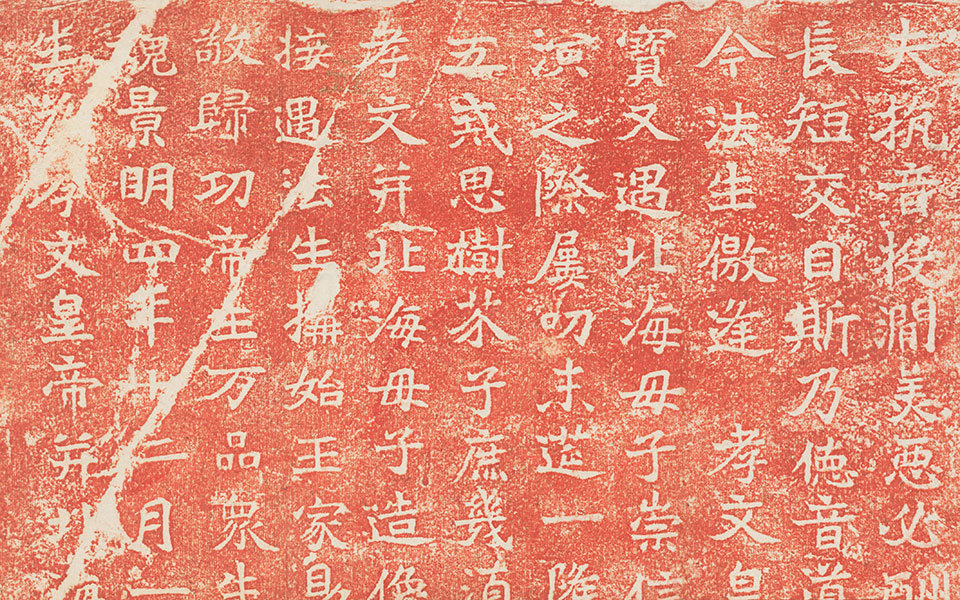 夫抗音投澗美惡必酬
長短交目斯乃德音道
今法生儌逢 孝文皇
寶又遇北海母子崇信
演之際屢叨末筵一降
五戒思樹芥子庶幾須
孝文并北海母子造像
接遇法生構始王家助
敬歸功帝王万品眾生
魏景明四年十二月一
生為孝文皇帝并北海